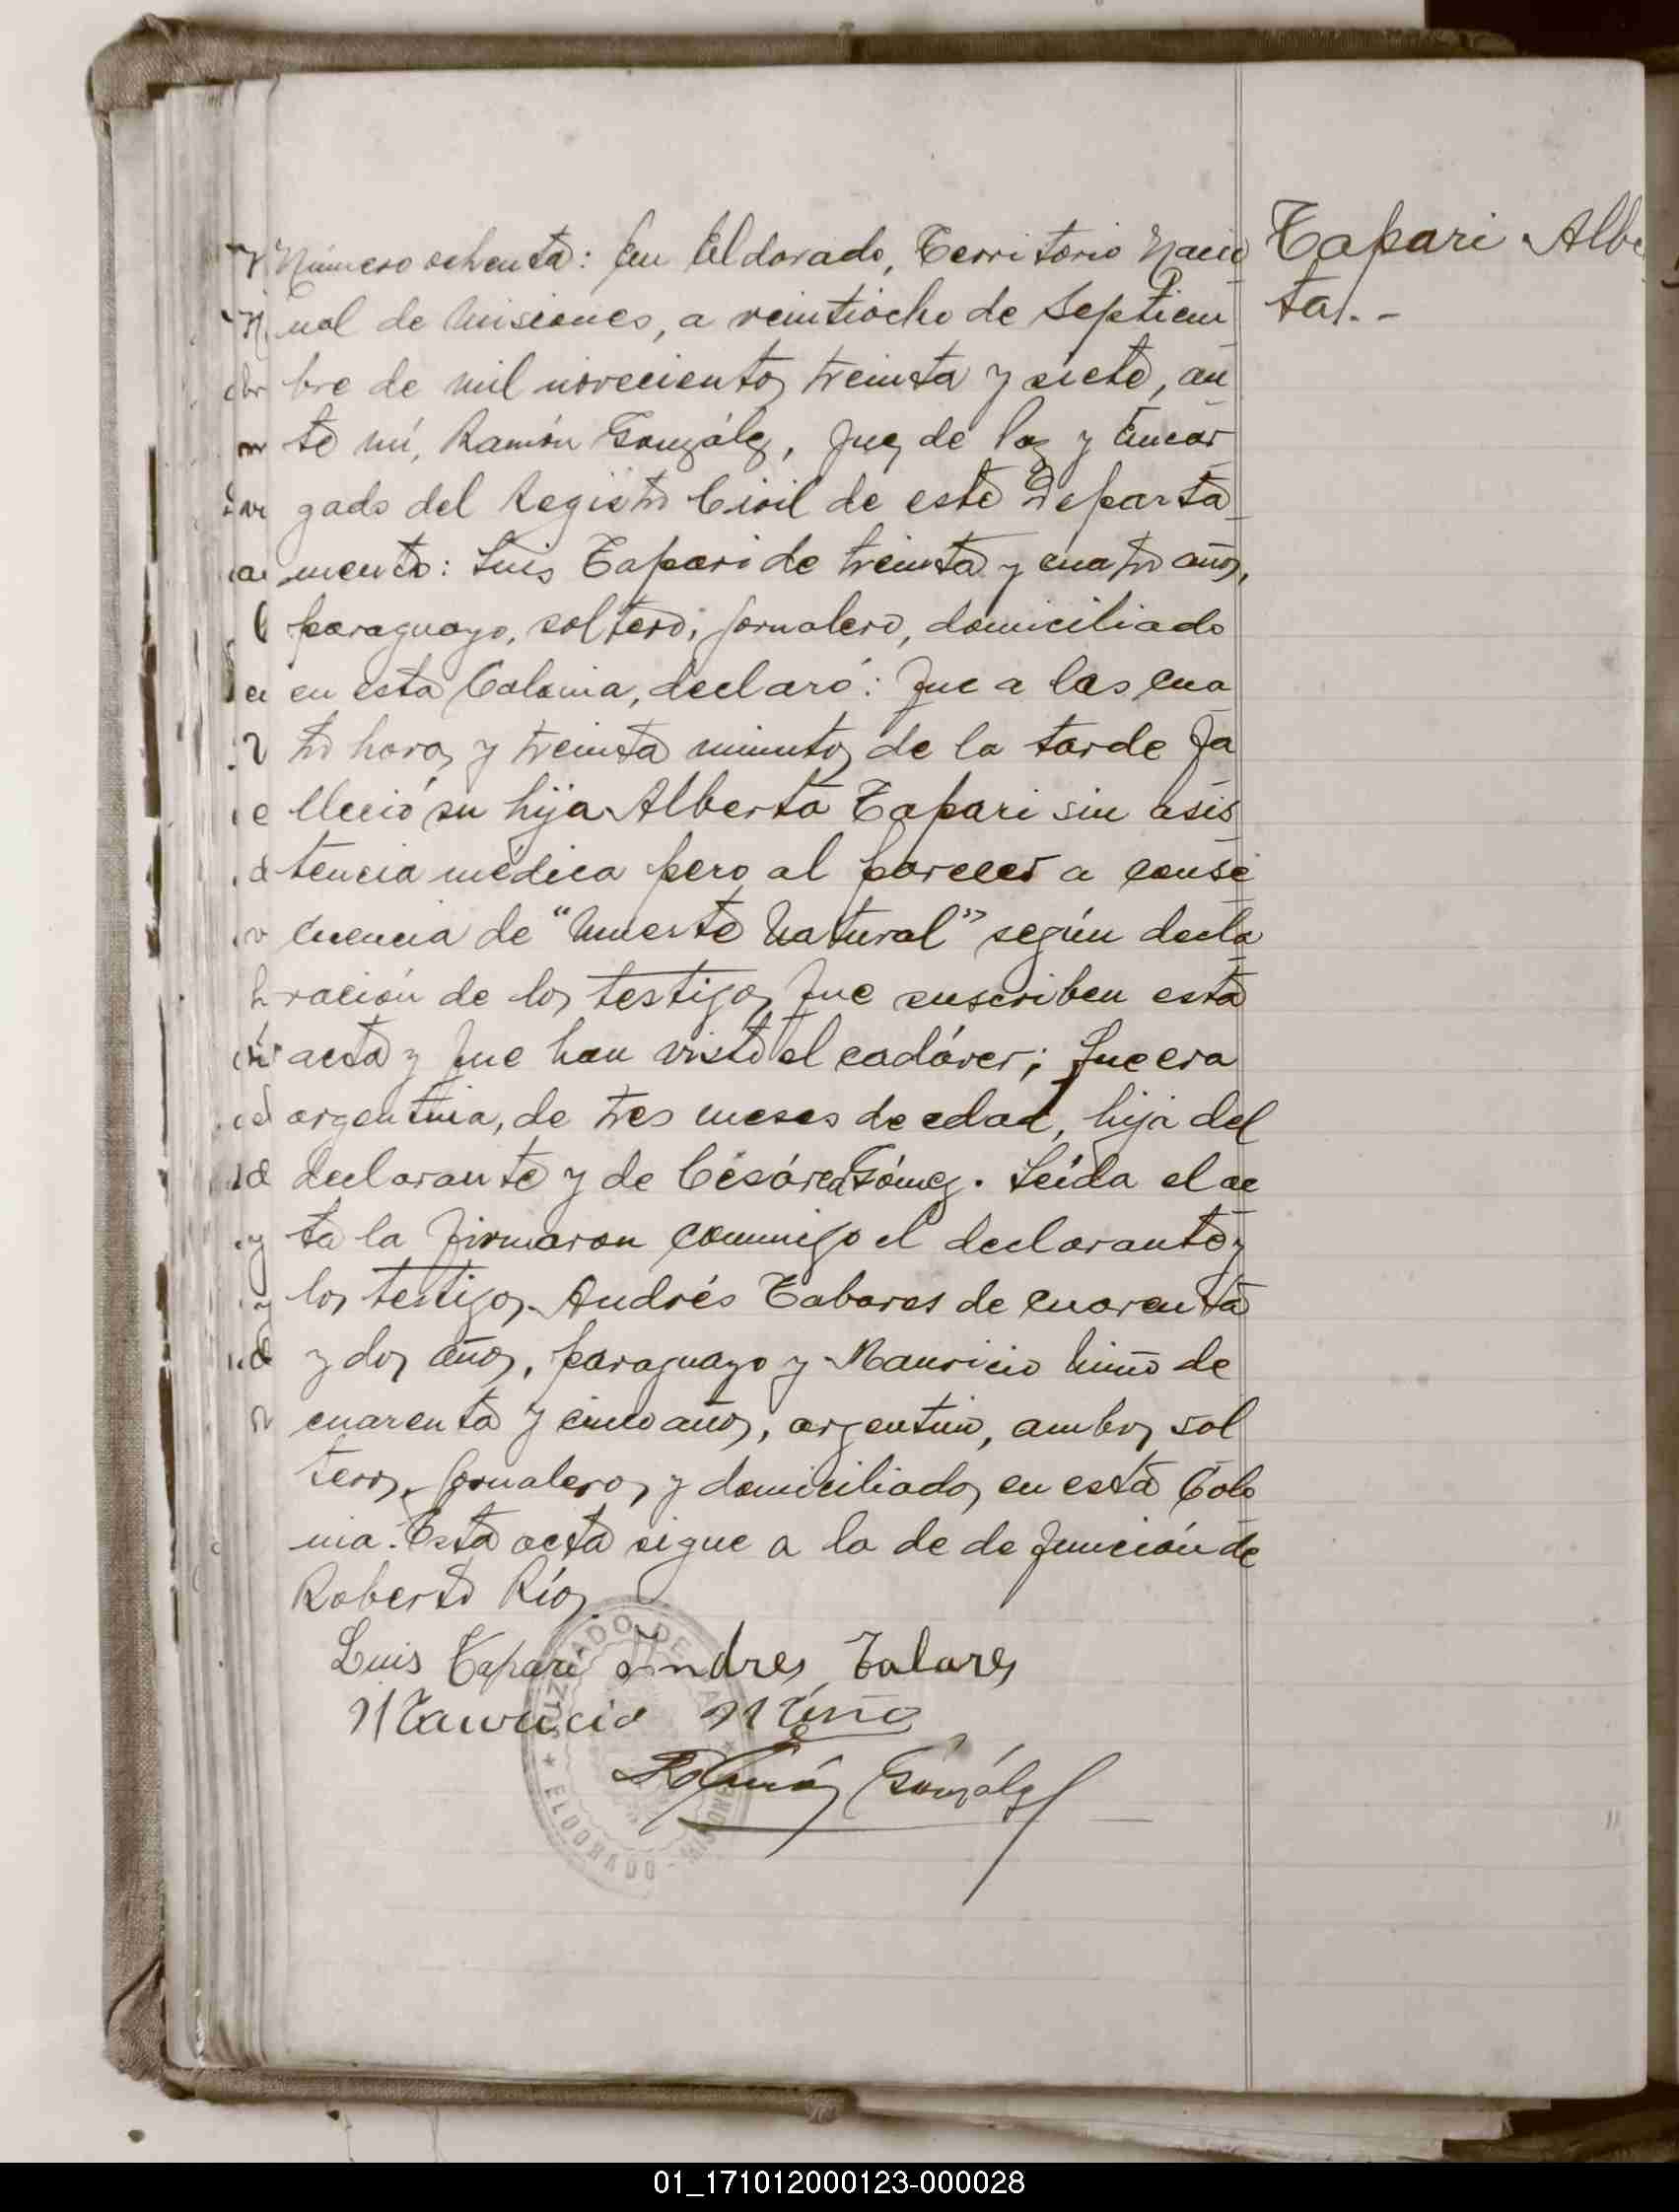 Tapari Alber
ta.-
Número ochenta: En Eldorado, Territorio Nacio
nal de Misiones, a veintiocho de Septiem
bre de mil novecientos treinta y siete, an
te mí, Ramón González, Juez de Paz y Encar
gado del Registro Civil de este Departa
mento: Luis Tapari de treinta y cuatro años,
paraguayo, soltero, jornalero, domiciliado
en esta Colonia, declaró: Que a las cua
tro horas y treinta minutos de la tarde fa
lleció su hija Alberta Tapari sin asis
tencia médica pero al parecer a conse
cuencia de "Muerte Natural" según decla
ración de los testigos que suscriben esta
acta y que han visto el cadáver; que era
argentina, de tres meses de edad, hija del
declarante y de Cesárea Gómez. Leída el ac
ta la firmaron conmigo el declarante y
los testigos. Andrés Tabares de cuarenta
y dos años, paraguayo y Mauricio Miño de
cuarenta y cinco años, argentino, ambos sol
teros, jornaleros y domiciliados en esta Colo
nia. Esta acta sigue a la de defunción de
Roberto Ríos
Luis Tapari Andres Tabares
Mauricio Miño
Ramón González
JUZGADO DE PAZ
★ ELDORADO - MISIONES ★
01_171012000123-000028